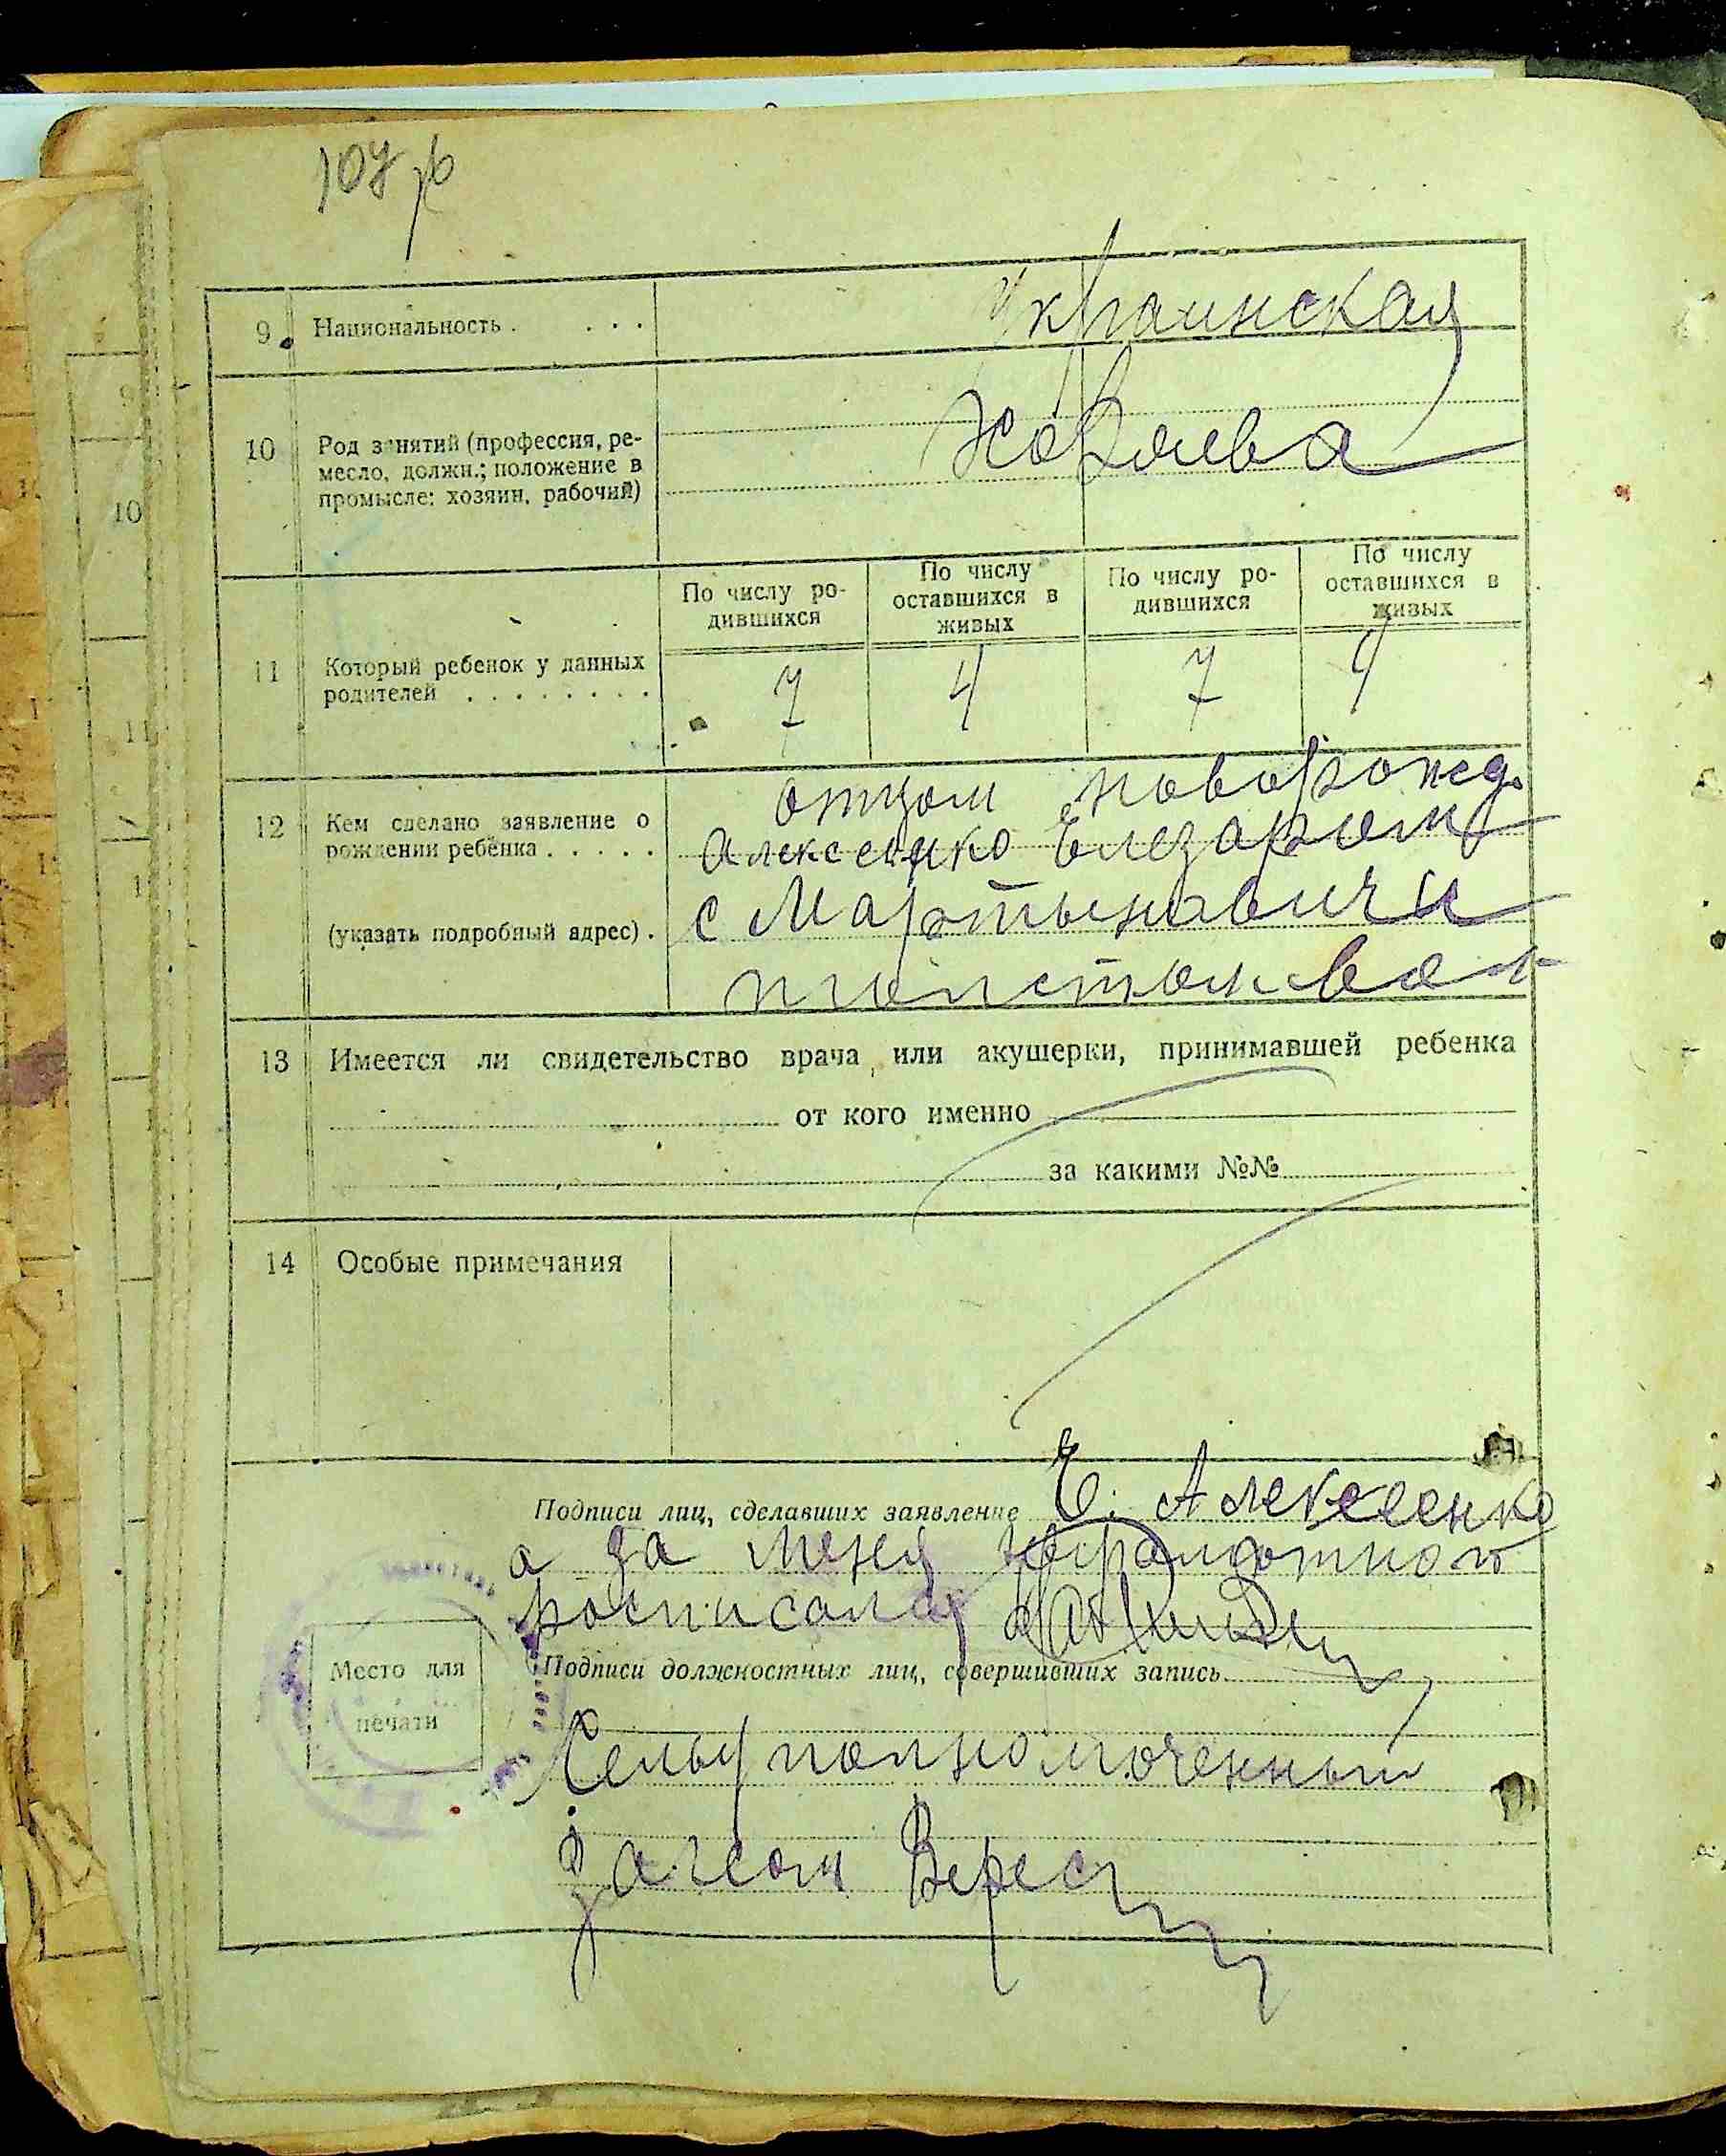 9. Национальность . . . . Украинская
10 Род занятий (профессия, ре-
месло, должн.; положение в
промысле: хозяин, рабочий)
11 Который ребенок у данных
родителей . . . . . . . .
По числу ро-
дившихся
По числу
оставшихся в
живых
По числу ро-
дившихся
По числу
оставшихся в
живых
7 4 7 4
12 Кем сделано заявление о
рождении ребёнка . . . . .
(указать подробный адрес) .
отцом новорожд.
Алексеенко Елезаром
с Мартыновичи
13 Имеется ли свидетельство врача или акушерки, принимавшей ребенка
от кого именно
за какими №№
14 Особые примечания
Подписи лиц, сделавших заявление Е. Алексеенко
а за меня
росписался
Подписи должностных лиц, совершивших запись
Место для
печати
Сельуполномоченный
загсом Верес
10
11